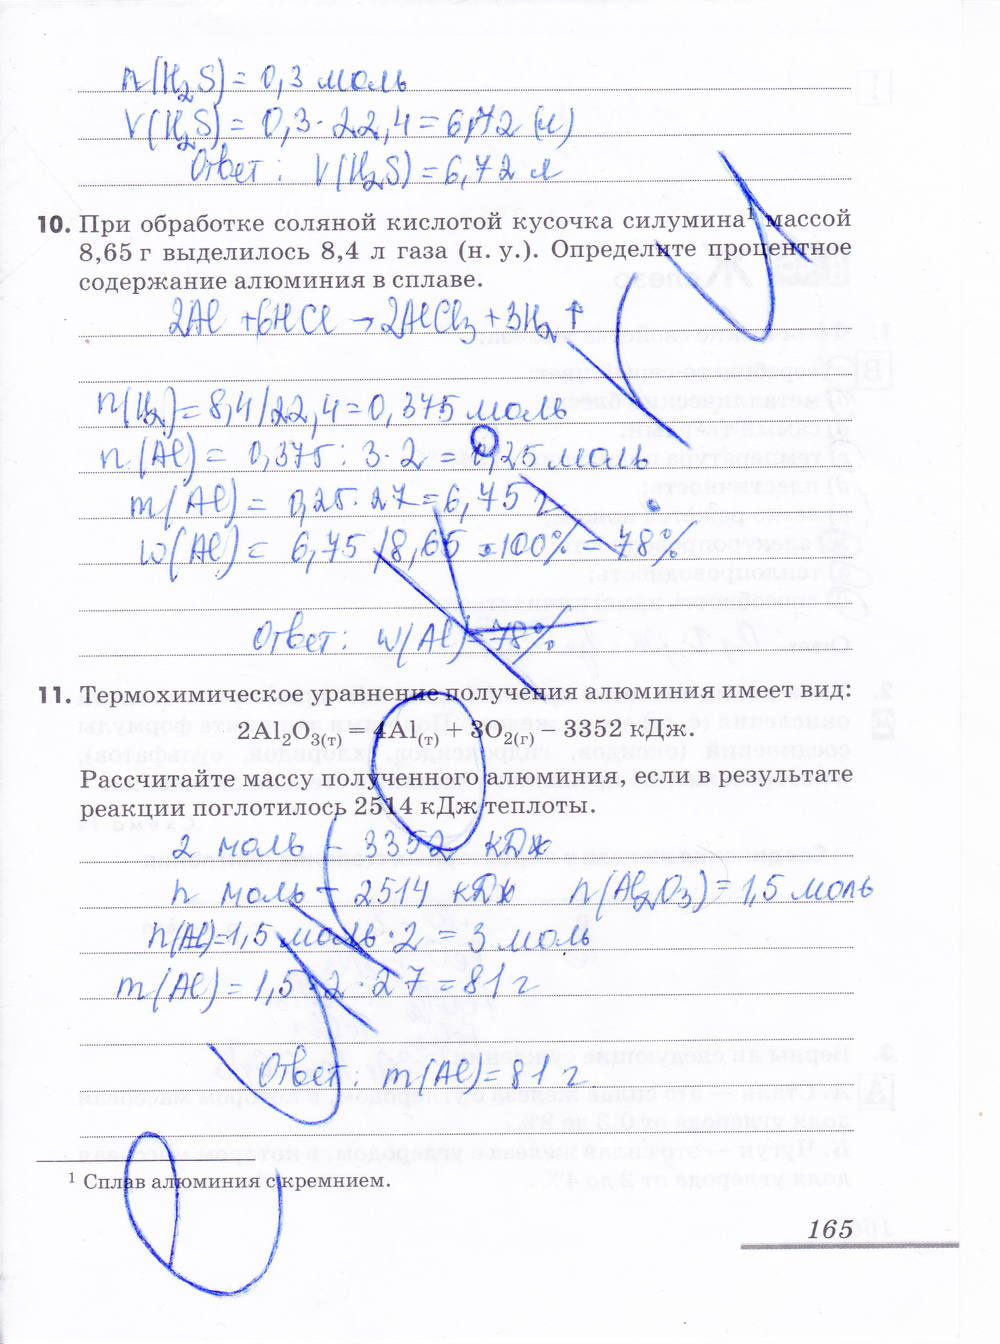 n(H₂S) = 0,3 моль
V(H₂S) = 0,3 · 22,4 = 6,72 (л)
Ответ: V(H₂S) = 6,72 л
10. При обработке соляной кислотой кусочка силумина¹ массой
8,65 г выделилось 8,4 л газа (н. у.). Определите процентное
содержание алюминия в сплаве.
2Al + 6HCl → 2AlCl₃ + 3H₂ ↑
n(H₂) = 8,4/22,4 = 0,375 моль
n(Al) = 0,375 : 3 · 2 = 0,25 моль
m(Al) = 0,25 · 27 = 6,75 г
w(Al) = 6,75/8,65 · 100% = 78%
Ответ: w(Al) = 78%
11. Термохимическое уравнение получения алюминия имеет вид:
2Al₂O₃(т) = 4Al(т) + 3O₂(г) – 3352 кДж.
Рассчитайте массу полученного алюминия, если в результате
реакции поглотилось 2514 кДж теплоты.
2 моль – 3352 кДж
n моль – 2514 кДж n(Al₂O₃) = 1,5 моль
n(Al) = 1,5 моль · 2 = 3 моль
m(Al) = 1,5 · 2 · 27 = 81 г
Ответ: m(Al) = 81 г
¹ Сплав алюминия с кремнием.
165